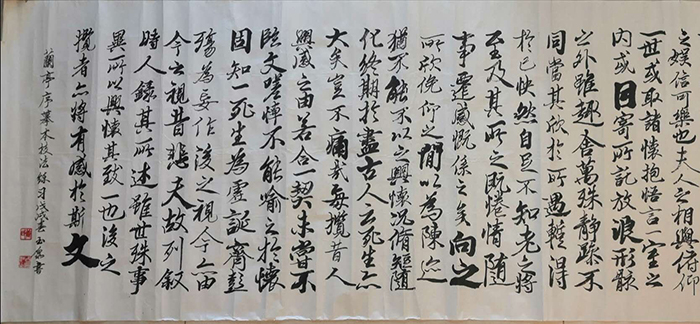 之娱信可樂也夫人之相與俯仰
一世或取諸懷抱悟言一室之
内或因寄所託放浪形骸
之外雖趣舍萬殊静躁不
同當其欣於所遇輙得
於己怏然自足不知老之將
至及其所之既惓情隨
事遷感慨係之矣向之
所欣俛仰之間以為陳迹
猶不能不以之興懷況脩短隨
化終期於盡古人云死生亦
大矣豈不痛哉每攬昔人
興感之由若合一契未嘗不
臨文嗟悼不能喻之於懷
固知一死生為虛誕齊彭
殤為妄作後之視今亦由
今之視昔悲夫故列叙
時人録其所述雖世殊事
異所以興懷其致一也後之
攬者亦將有感於斯文
蘭亭序摹本技法練習 玉 書